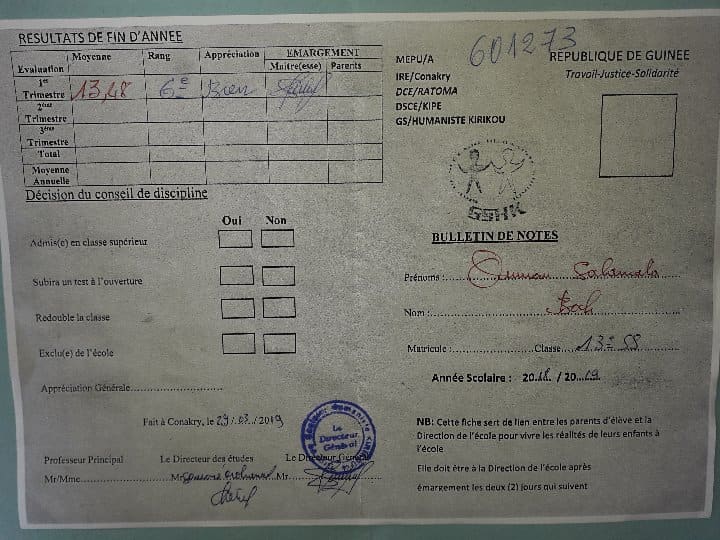 RESULTATS DE FIN D'ANNEE
Evaluation Moyenne Rang Appréciation EMARGEMENT
Maitre(esse) Parents
1er Trimestre 13,48 6e Bien
2ème Trimestre
3ème Trimestre
Total
Moyenne Annuelle
Décision du conseil de discipline
Oui Non
Admis(e) en classe supérieur
Subira un test à l'ouverture
Redouble la classe
Exclu(e) de l'école
Appréciation Générale
Fait à Conakry, le 29/03/2019
Professeur Principal Le Directeur des études Le Directeur Général
Mr/Mme Mr Mr
Le Directeur Général
601273
MEPU/A REPUBLIQUE DE GUINEE
IRE/Conakry Travail-Justice-Solidarité
DCE/RATOMA
DSCE/KIPE
GS/HUMANISTE KIRIKOU
GSHK
BULLETIN DE NOTES
Prénoms :
Nom : Bah
Matricule : Classe 13e SS
Année Scolaire : 2018 / 2019
NB: Cette fiche sert de lien entre les parents d'élève et la
Direction de l'école pour vivre les réaltés de leurs enfants à
l'école
Elle doit être à la Direction de l'école après
émargement les deux (2) jours qui suivent